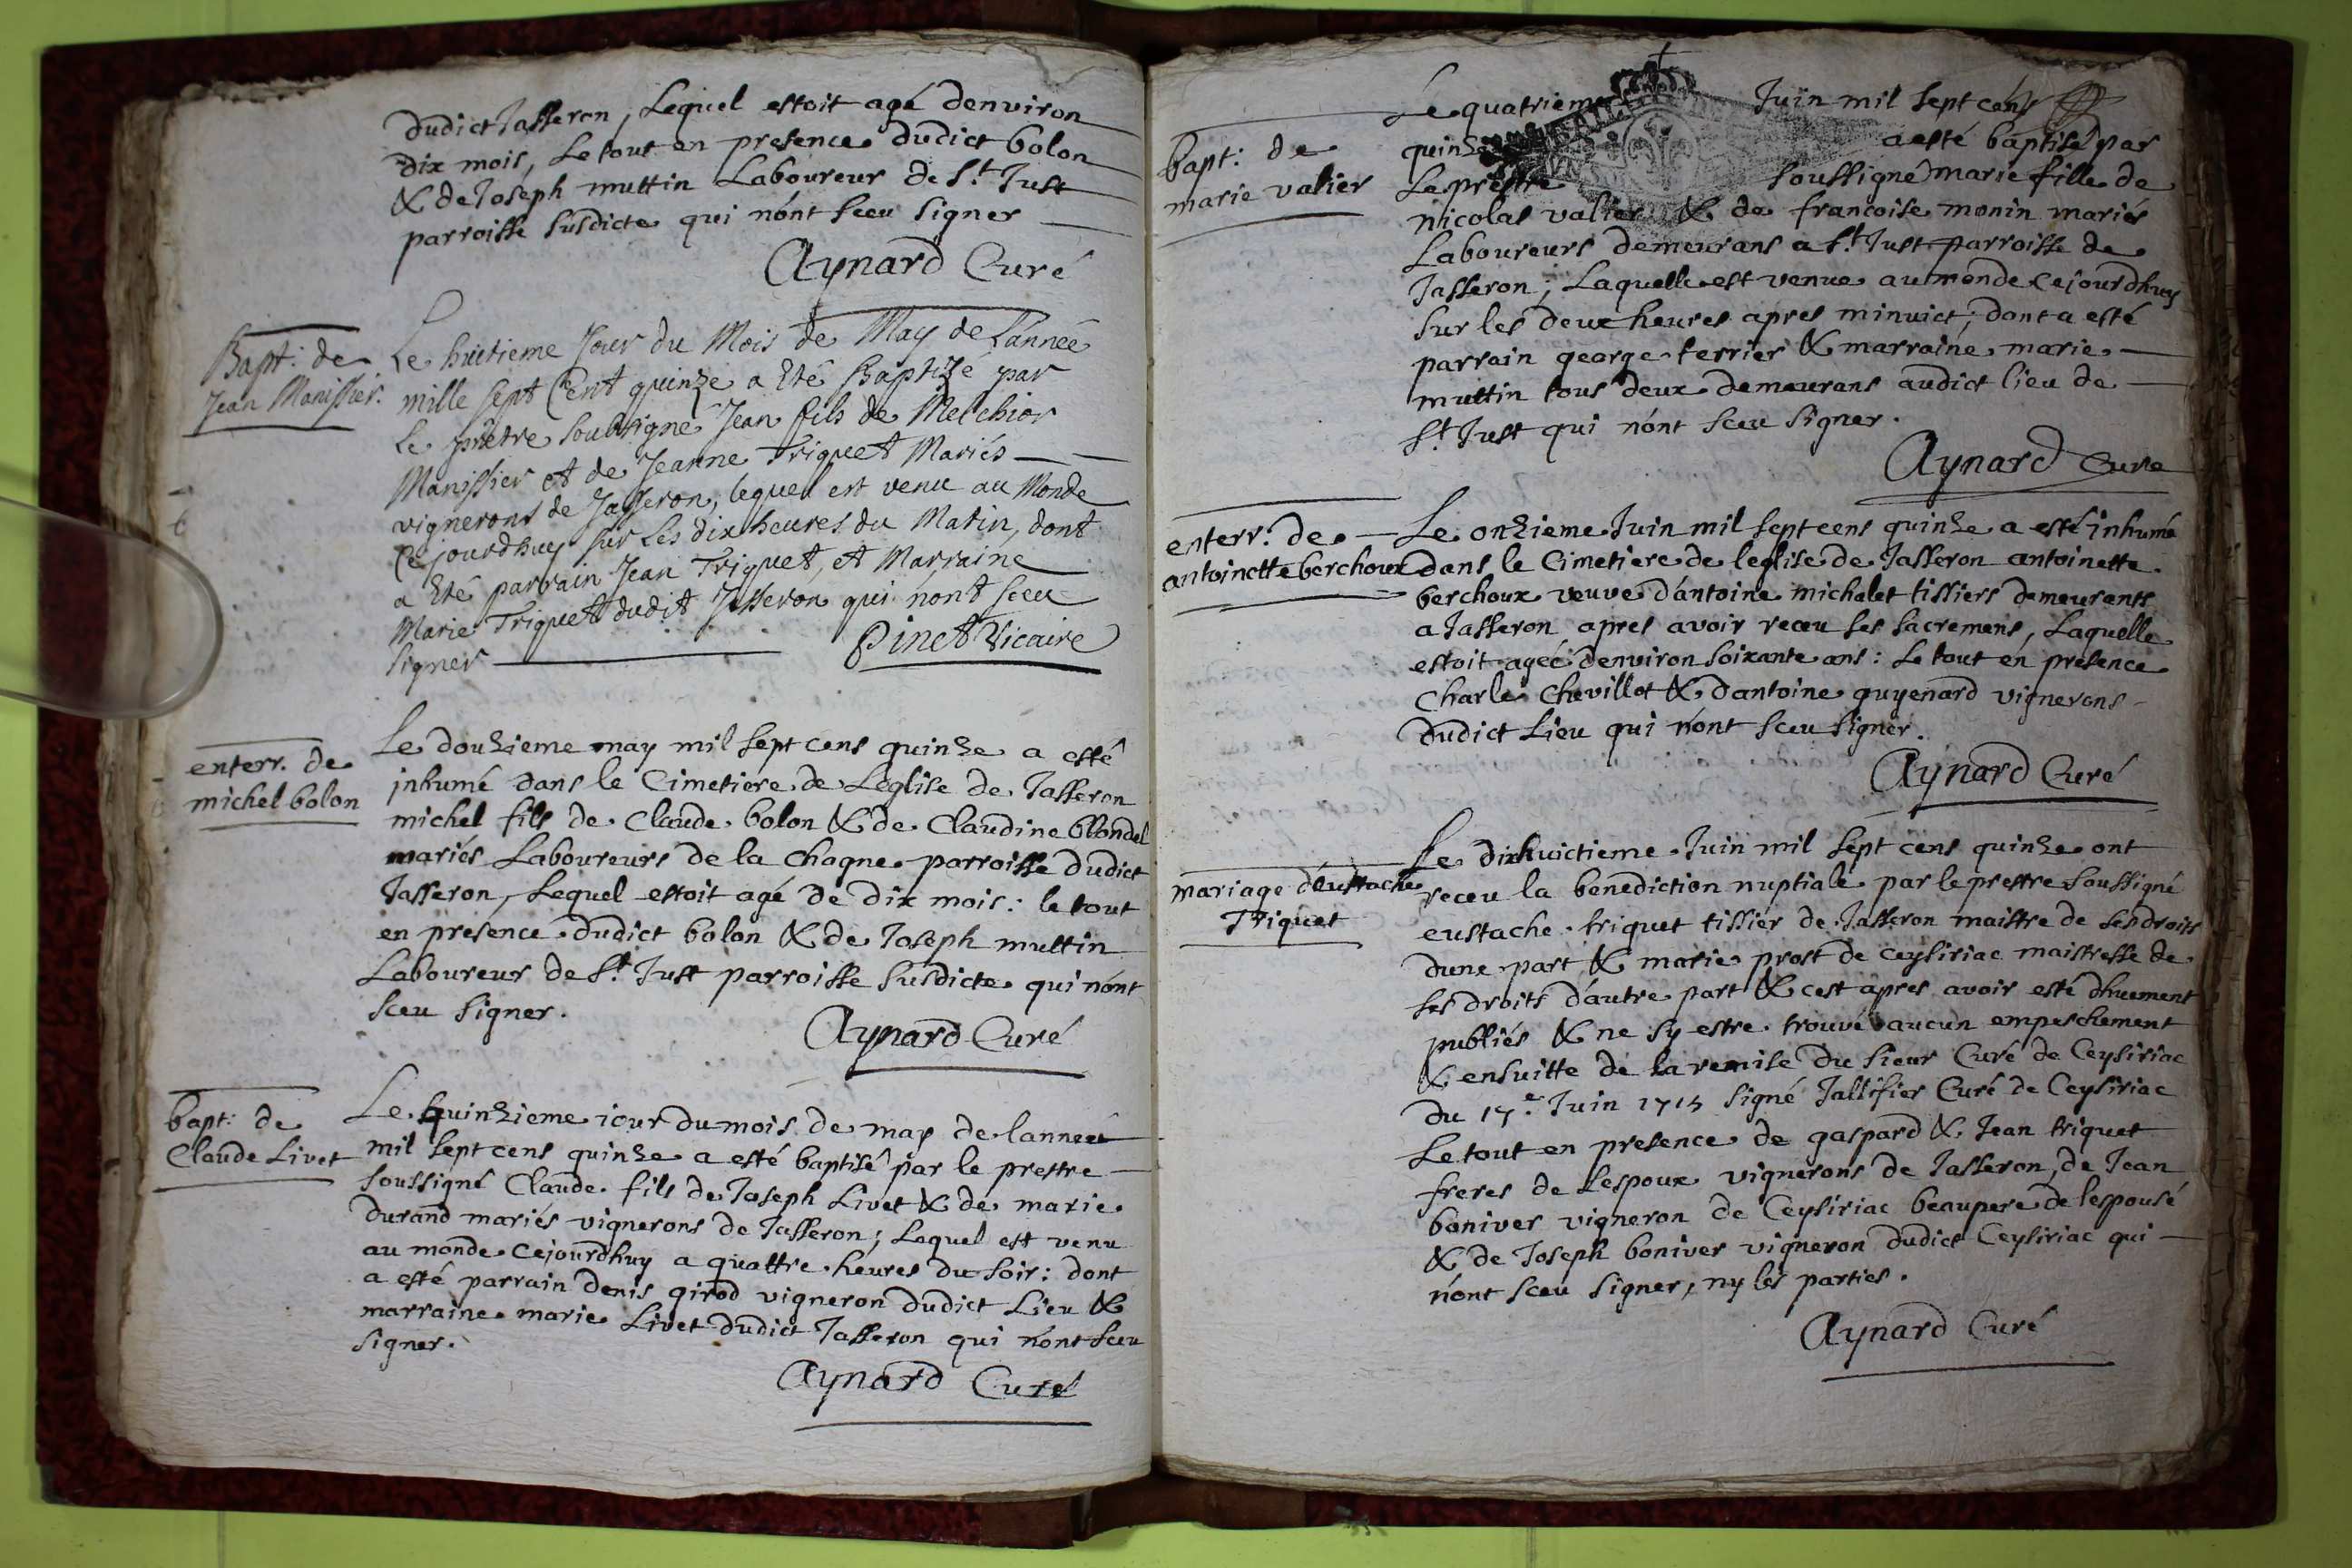 dudict Jasseron, Lequel estoit agé denviron
dix mois, Le tout en presence dudict bolon
& de Joseph muttin Laboureur de St. Just
parroisse susdicte qui n'ont sceu signer
Aynard Curé
Bapt: de
Jean Manissier.
Le huitieme Jour du Mois de May de L'année
mille sept Cent quinze a eté Baptizé par
le prêtre soussigné Jean fils de Melchior
Manissier et de Jeanne Triquet Mariés
vignerons de Jasseron, lequel est venu au Monde
Cejourdhuy sur Les dix heures du Matin, dont
a eté parrain Jean Triquet, et Marraine
Marie Triquet dudit Jasseron qui n'ont sceu
signer
Pinet Vicaire
enterr. de
michel bolon
Le douzieme may mil sept cens quinze a esté
inhumé dans le Cimetiere de Leglise de Jasseron
michel fils de Claude bolon & de Claudine blondel
mariés Laboureurs de la chagne parroisse dudict
Jasseron, Lequel estoit agé de dix mois: le tout
en presence dudict bolon & de Joseph muttin
Laboureur de St. Just parroisse susdicte qui n'ont
sceu signer.
Aynard Curé
bapt: de
Claude Livet
Le quinzieme jour du mois de may de lanneé
mil sept cens quinze a esté baptisé par le prestre
soussigné Claude fils de Joseph Livet & de marie
durand mariés vignerons de Jasseron; Lequel est venu
au monde cejourdhuy a quattre heures du soir: dont
a esté parrain denis girod vigneron dudict Lieu &
marraine marie Livet dudict Jasseron qui n'ont sceu
signer.
Aynard Curé
bapt: de
marie valier
Le quatrieme Juin mil sept cens
quinze a esté baptisé par
Le prestre soussigné marie fille de
nicolas valier & de francoise monin mariés
Laboureurs demeurans a St. Just parroisse de
Jasseron; Laquelle est venue au monde cejourdhuy
sur les deux heures apres minuict; dont a esté
parrain george terrier & marraine marie
muttin tous deux demeurans audict lieu de
St. Just qui n'ont sceu signer.
Aynard Cure
enterr. de
antoinette berchoux
Le onzieme Juin mil sept cens quinze a esté inhumé
dans le Cimetiere de leglise de Jasseron antoinette
berchoux veuve d'antoine michalet tissiers demeurants
a Jasseron apres avoir receu ses sacremens, Laquelle
estoit ageé denviron soixante ans: Le tout en presence
Charle Chevillot & dantoine guyenard vignerons
dudict Lieu qui n'ont sceu signer.
Aynard Curé
mariage d'eustache
Triquet
Le dixhuictieme Juin mil sept cens quinze ont
receu la benediction nuptiale par le prestre soussigné
eustache triquet tissier de Jasseron maistre de ses droits
dune part & marie prost de ceysiriac maistresse de
ses droits d'autre part & cest apres avoir esté dhuement
publiés & ne sy estre trouvé aucun empeschement
& ensuitte de la remise du sieur Curé de Ceysiriac
du 17e. Juin 1715 signé Jallifier Curé de Ceysiriac
Le tout en presence de gaspard & Jean triquet
freres de Lespoux vignerons de Jasseron, de Jean
boniver vigneron de Ceysiriac beaupere de lespousé
& de Joseph boniver vigneron dudict Ceysiriac qui
n'ont sceu signer, ny les parties.
Aynard Curé